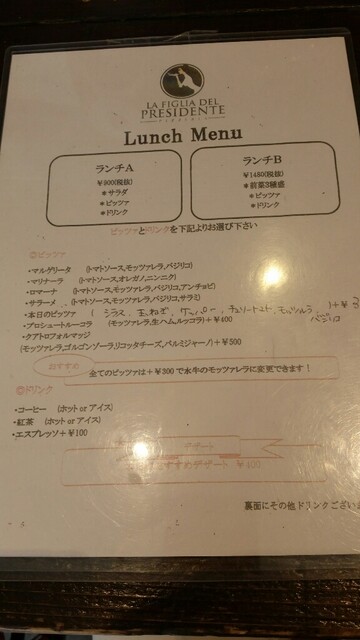 LA FIGLIA DEL
PRESIDENTE
Lunch Menu
ランチA
￥900(税抜)
＊サラダ
＊ピッツァ
＊ドリンク
ランチB
￥1480(税抜)
＊前菜3種盛
＊ピッツァ
＊ドリンク
ピッツァとドリンクを下記よりお選び下さい
◎ピッツァ
・マルゲリータ (トマトソース,モッツァレラ,バジリコ)
・マリナーラ (トマトソース,オレガノ,ニンニク)
・ロマーナ (トマトソース,モッツァレラ,バジリコ,アンチョビ)
・サラーメ (トマトソース,モッツァレラ,バジリコ,サラミ)
・本日のピッツァ ( シラス 玉ねぎ ケッパー チェリートマト モッツァレラ )+￥3
バジリコ
・プロシュートルーコラ (モッツァレラ,生ハム,ルッコラ)+￥400
・クアトロフォルマッジ
(モッツァレラ,ゴルゴンゾーラ,リコッタチーズ,パルミジャーノ)+￥500
おすすめ
全てのピッツァは+￥300で水牛のモッツァレラに変更できます！
◎ドリンク
・コーヒー (ホット or アイス)
・紅茶 (ホット or アイス)
・エスプレッソ+￥100
デザート
おすすめデザート ￥400
裏面にその他ドリンクござい